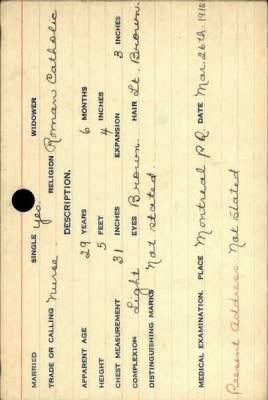 MARRIED SINGLE Yes. WIDOWER
TRADE OR CALLING Nurse. RELIGION Roman Catholic
DESCRIPTION.
APPARENT AGE 29 YEARS 6 MONTHS
HEIGHT 5 FEET 4 INCHES
CHEST MEASUREMENT 31 INCHES EXPANSION 3 INCHES
COMPLEXION Light EYES Brown. HAIR Lt. Brown.
DISTINGUISHING MARKS Not stated.
MEDICAL EXAMINATION. PLACE Montreal P.Q. DATE Mar. 26th. 1918
Present Address Not stated